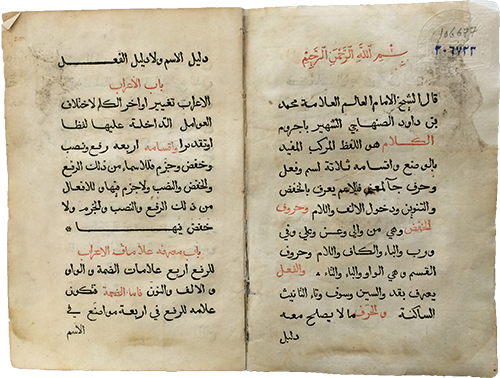 ١٠٨٦٣٧
٣٠٦٧٢٢
بسم الله الرحمن الرحيم
قال الشيخ الامام العالم العلامة محمد
بن داود الصنهاجي الشهير باجروم
الكلام هو اللفظ المركب المفيد
بالوضع واقسامه ثلاثة اسم وفعل
وحرف جا لمعني فالاسم يعرف بالخفض
والتنوين ودخول الالف واللام وحروف
الخفض وهي من والي وعن وعلي وفي
ورب والباء والكاف واللام وحروف
القسم وهي الواو والباء والتاء والفعل
يعرف بقد والسين وسوف وتاء التانيث
الساكنة والحرف ما لا يصلح معه
دليل
دليل الاسم ولا دليل الفعل
باب الاعراب
الاعراب تغيير اواخر الكلم لاختلاف
العوامل الداخلة عليها لفظا
اوتقديرا واقسامه اربعه رفع ونصب
وخفض وجزم فللاسماء من ذلك الرفع
والخفض والنصب ولا جزم فيها وللافعال
من ذلك الرفع والنصب والجزم ولا
خفض فيها
باب معرفة علامات الاعراب
للرفع اربع علامات الضمة والواو
والالف والنون فاما الضمة فتكون
علامه للرفع في اربعة مواضع في
الاسم